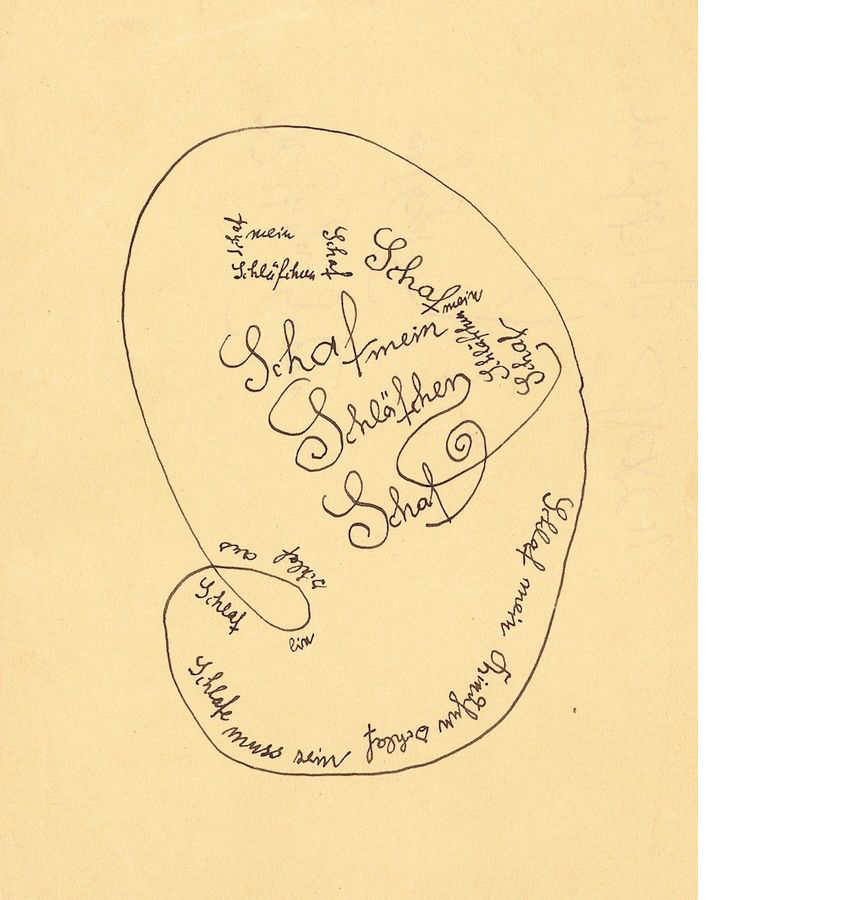 Schaf mein
Schläfchen Schaf
Schaf mein
Schläfchen
Schaf
Schaf mein
Schläfchen
Schaf
Schlaf mein Kindchen Schlaf
Schlafe muss sein
Schlaf
ein
Schlaf
aus